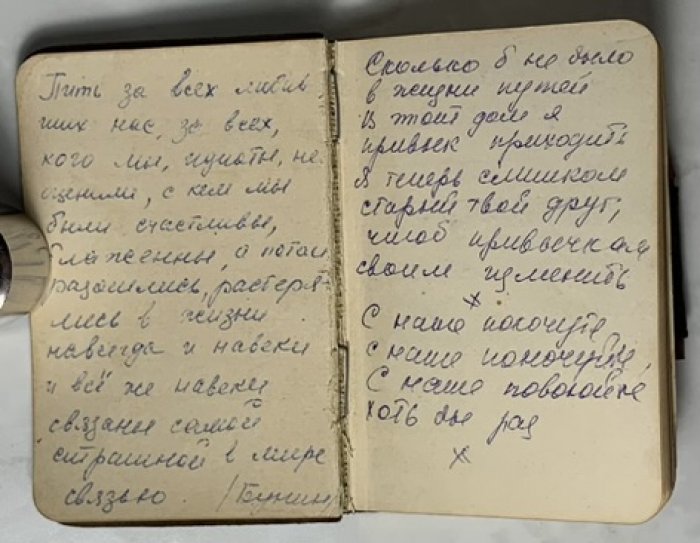 Пить за всех любив
ших нас, за всех,
кого мы, идиоты, не
оценили, с кем мы
были счастливы,
блаженны, а потом
разошлись, растеря-
лись в жизни
навсегда и навеки
и всё же навеки
связаны самой
страшной в мире
связью. /Бунин/
Сколько б не было
в жизни путей
В этот дом я
привык приходить
Я теперь слишком
старый твой друг,
чтоб привычкам
своим изменить
х
С наше покочуйте,
с наше поночуйте,
С наше повоюйте
хоть бы раз
х